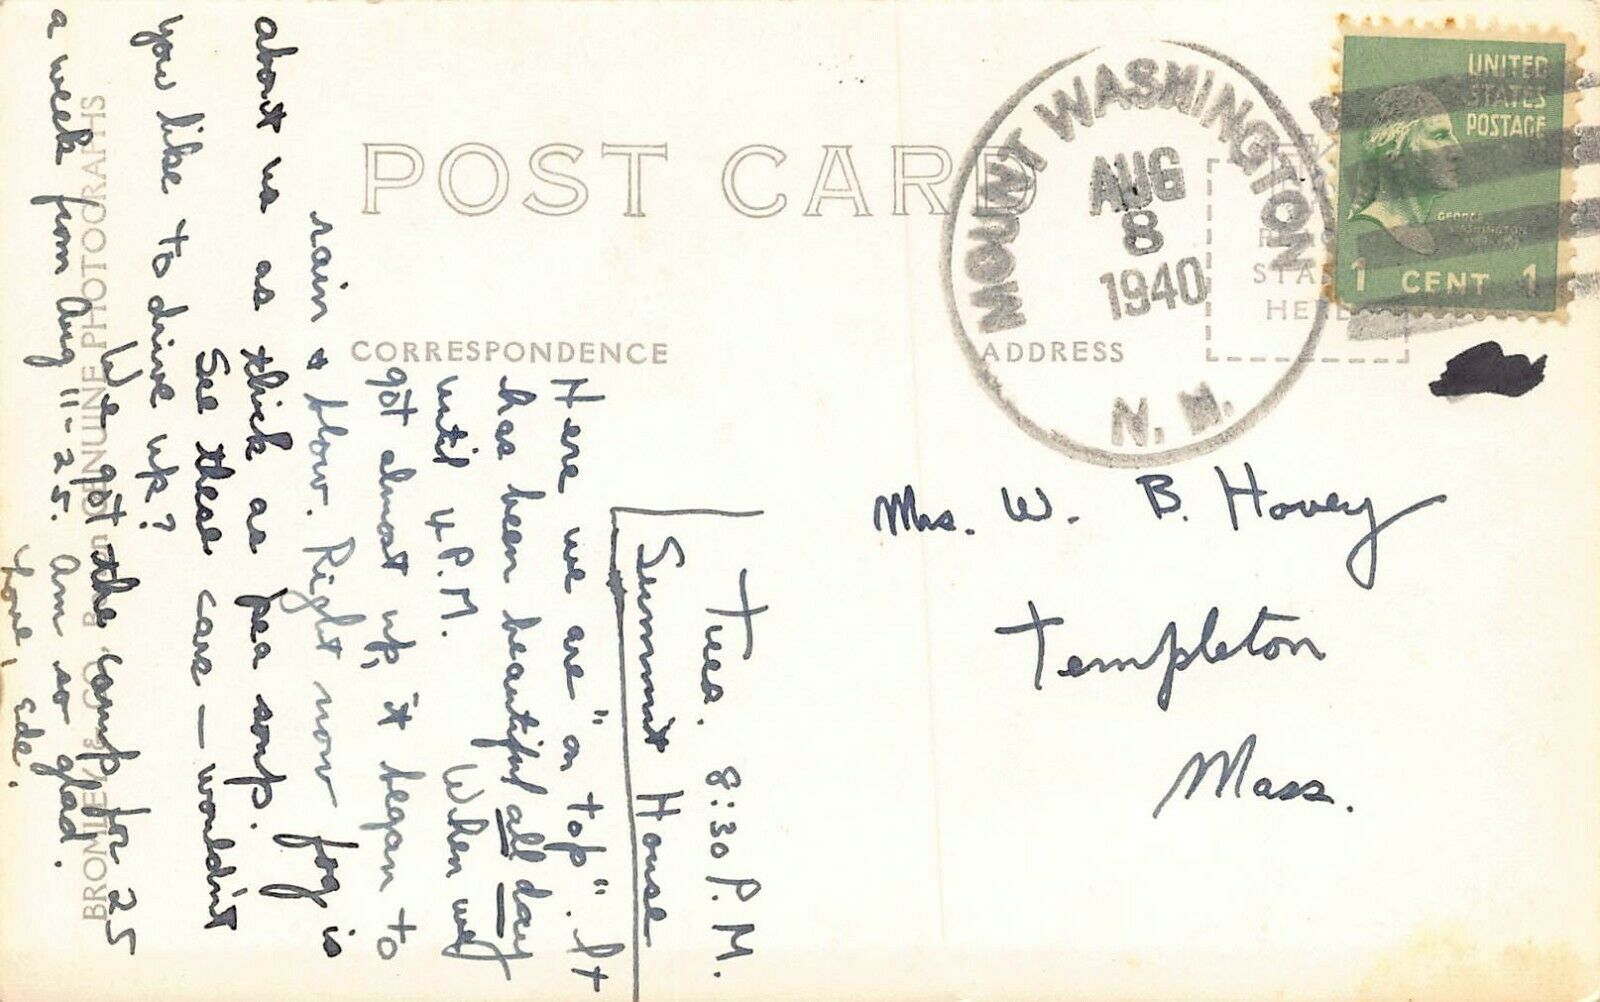 POST CARD
CORRESPONDENCE
ADDRESS
STA
HERE
MOUNT WASHINGTON
AUG
8
1940
N. H.
UNITED
STATES
POSTAGE
GEORGE
WASHINGTON
1 CENT 1
Mrs. W. B. Hovey
Templeton
Mass.
Tues. 8:30 P.M.
Summit House
Here we are "on top". It
has been beautiful all day
until 4 P.M. When we
got almost up, it began to
rain & blow. Right now fog is
about us as thick as pea soup.
See these cars – wouldn't
you like to drive up?
We got the camp for 25
a week from Aug 11-25. Am so glad.
Love, Ede.
GENUINE PHOTOGRAPHS